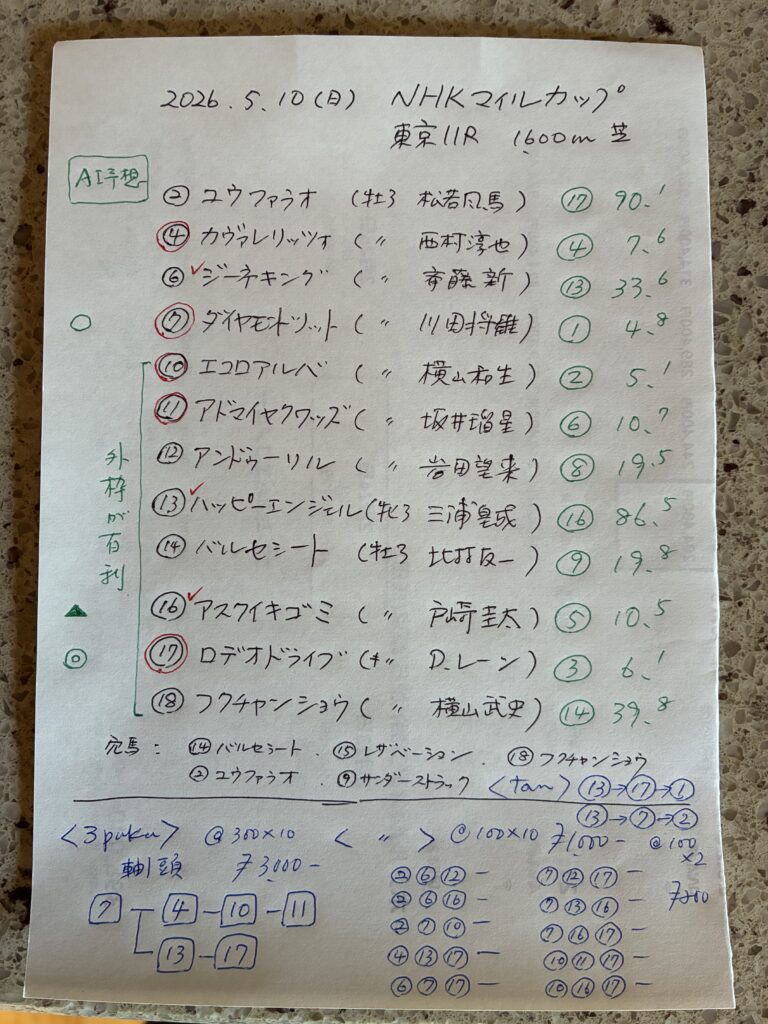 2026.5.10(日) NHKマイルカップ
東京11R 1600m 芝
AI予想
② ユウファラオ (牡3 松若風馬) ⑰ 90.1
④ カヴァレリッツォ (〃 西村淳也) ④ 7.6
⑥ ✓ジーネキング (〃 斉藤新) ⑬ 33.6
○ ⑦ ダイヤモンドノット (〃 川田将雅) ① 4.8
⑩ エコロアルバ (〃 横山和生) ② 5.1
⑪ アドマイヤクワッズ (〃 坂井瑠星) ⑥ 10.7
⑫ アンドゥーリル (〃 岩田望来) ⑧ 19.5
外枠が有利
⑬ ✓ハッピーエンジェル (牝3 三浦皇成) ⑯ 86.5
⑭ バルセシート (牡3 北村友一) ⑨ 19.8
▲ ⑯ ✓アスクイキゴミ (〃 戸崎圭太) ⑤ 10.5
◎ ⑰ ロデオドライブ (〃 D.レーン) ③ 6.1
⑱ フクチャンショウ (〃 横山武史) ⑭ 39.8
穴馬: ⑭バルセシート . ⑮レザベーション . ⑱フクチャンショウ
②ユウファラオ . ⑨サンダーストラック
<tan> ⑬→⑰→①
⑬→⑦→②
@100×2
¥200
<3puku> @300×10
軸1頭 ¥3,000-
7 - 4 - 10 - 11
13 - 17
< 〃 > @100×10 ¥1,000-
②⑥⑫ー ⑦⑫⑰ー
②⑥⑯ー ⑦⑬⑯ー
②⑦⑩ー ⑦⑯⑰ー
④⑬⑰ー ⑩⑪⑰ー
⑥⑦⑰ー ⑩⑯⑰ー